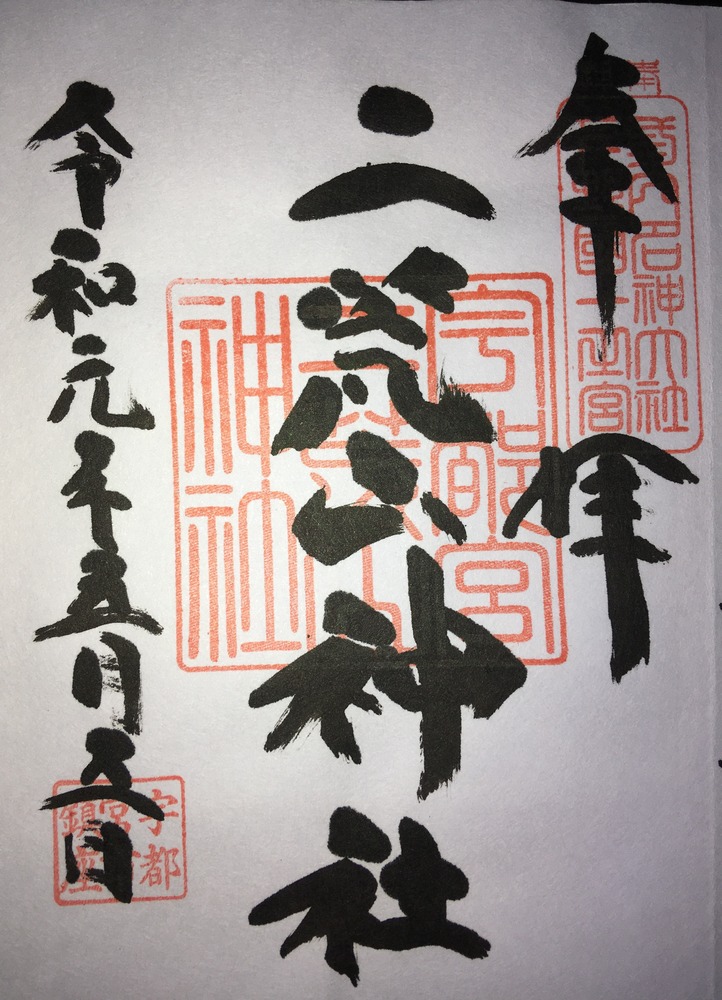 奉拝
内名神大社
國一之宮
二荒山神社
宇都宮
二荒山
神社
令和元年五月五日
宇都
宮
鎮座